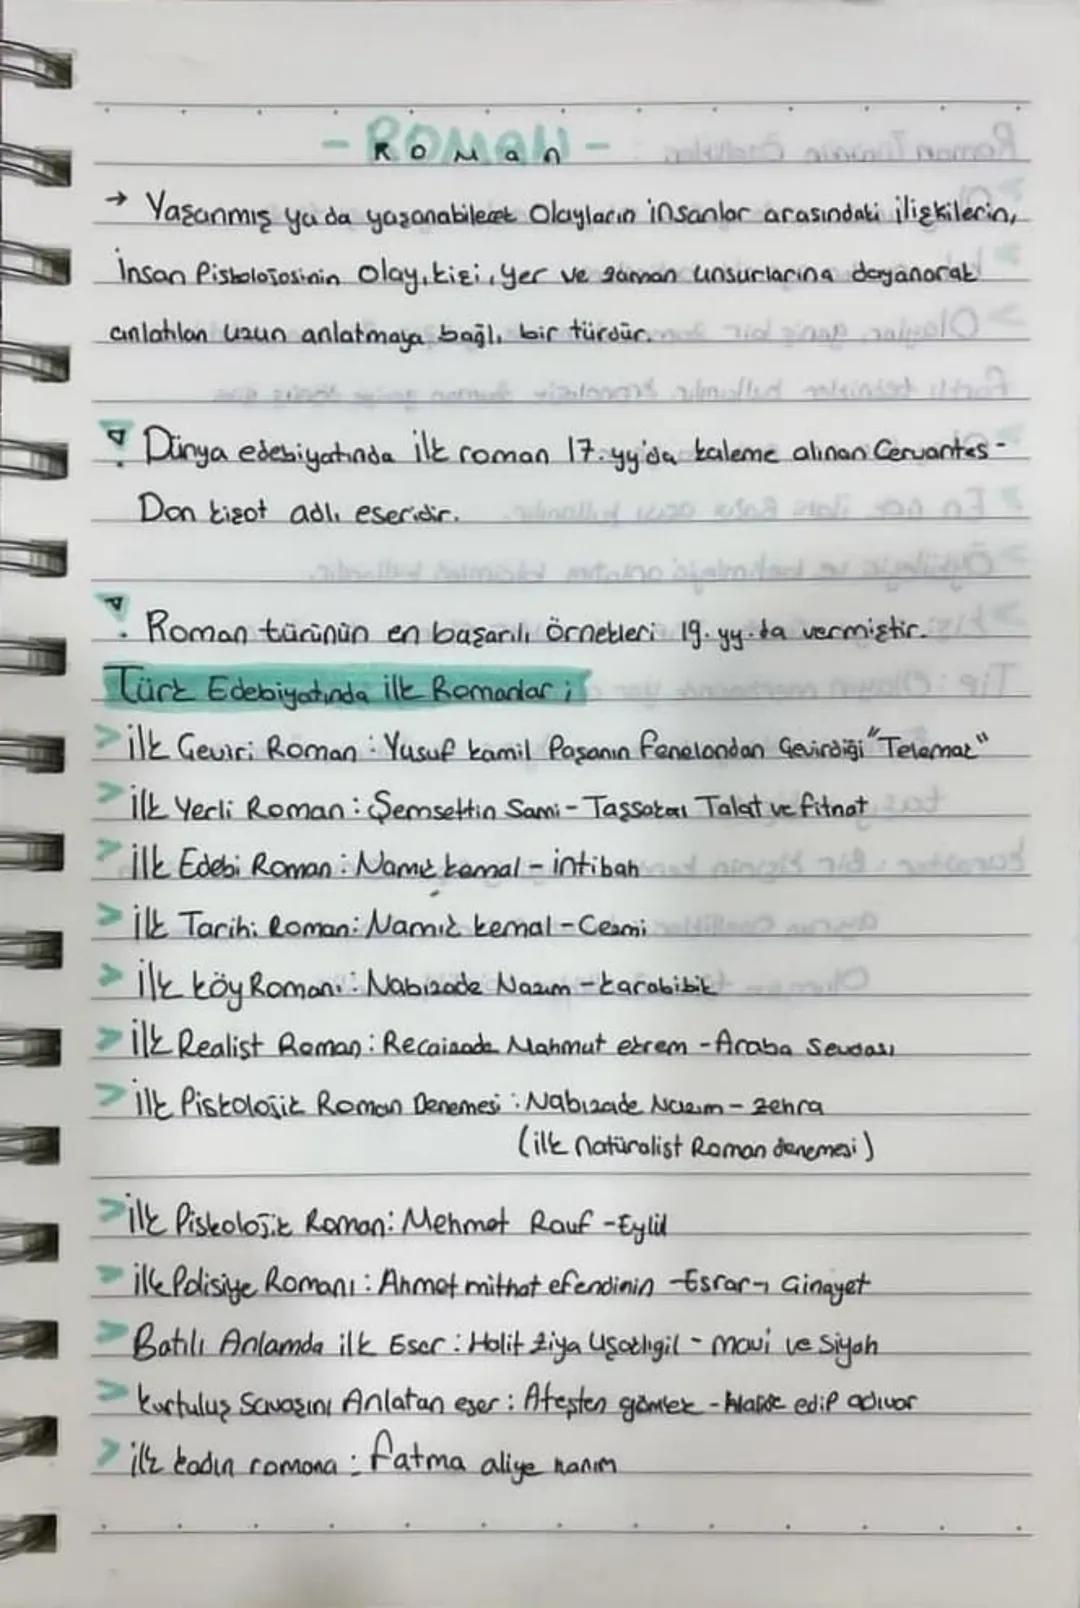 - ROMAN -
→ Yaşanmış ya da yaşanabilecek Olayların insanlar arasındaki ilişkilerin,
İnsan Piskolojosinin Olay, kişi, yer ve zaman unsurlarına dayanarak
anlatılan uzun anlatmaya bağlı bir türdür.
Dünya edebiyatında ilk roman 17. yy'da kaleme alınan Cervantes -
Don kişot adlı eseridir.
Roman türünün en başarılı örnekleri 19. yy. da vermiştir.
Türk Edebiyatında ilk Romanlar ;
> İlk Çeviri Roman : Yusuf kamil Paşanın Fenelondan Çevirdiği "Telemak"
> İlk Yerli Roman : Şemsettin Sami - Taşşakaı Talat ve fitnat
> İlk Edebi Roman : Namık kemal - intibah
> İlk Tarihi Roman: Namık kemal - Cezmi
> İlk köy Romanı : Nabizade Nazım - karabibik
> İlk Realist Roman : Recaizade Mahmut ekrem - Araba Sevdası
> İlk Piskolojik Roman Denemesi : Nabızade Nazım - zehra
(ilk natüralist Roman denemesi)
> ilk Piskolojik Roman: Mehmet Rauf - Eylül
> ilk Polisiye Romanı : Ahmet mithat efendinin - Esrar-ı Cinayet
> Batılı Anlamda ilk Eser : Halit Ziya Uşaklıgil - mavi ve Siyah
> kurtuluş Savaşını Anlatan eser : Ateşten gömlek - Halide edip adıvar
> ilk kadın romana : fatma aliye hanım